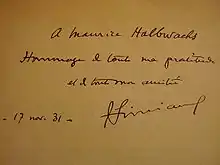 A Maurice Halbwachs
Hommage de toute ma gratitude
et de toute mon amitié
- 17 nov. 31 - FSimiand